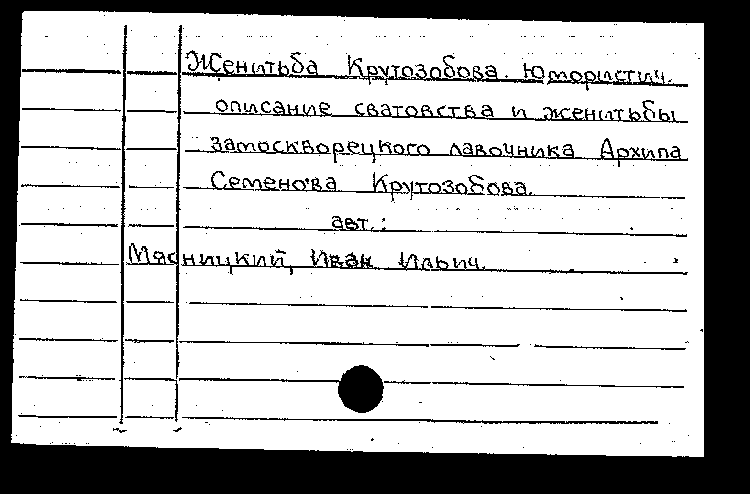 Женитьба Крутозобова. Юмористич.
описание сватовства и женитьбы
замоскворецкого лавочника Архипа
Семенова Крутозобова.
авт.:
Мясницкий, Иван Ильич.